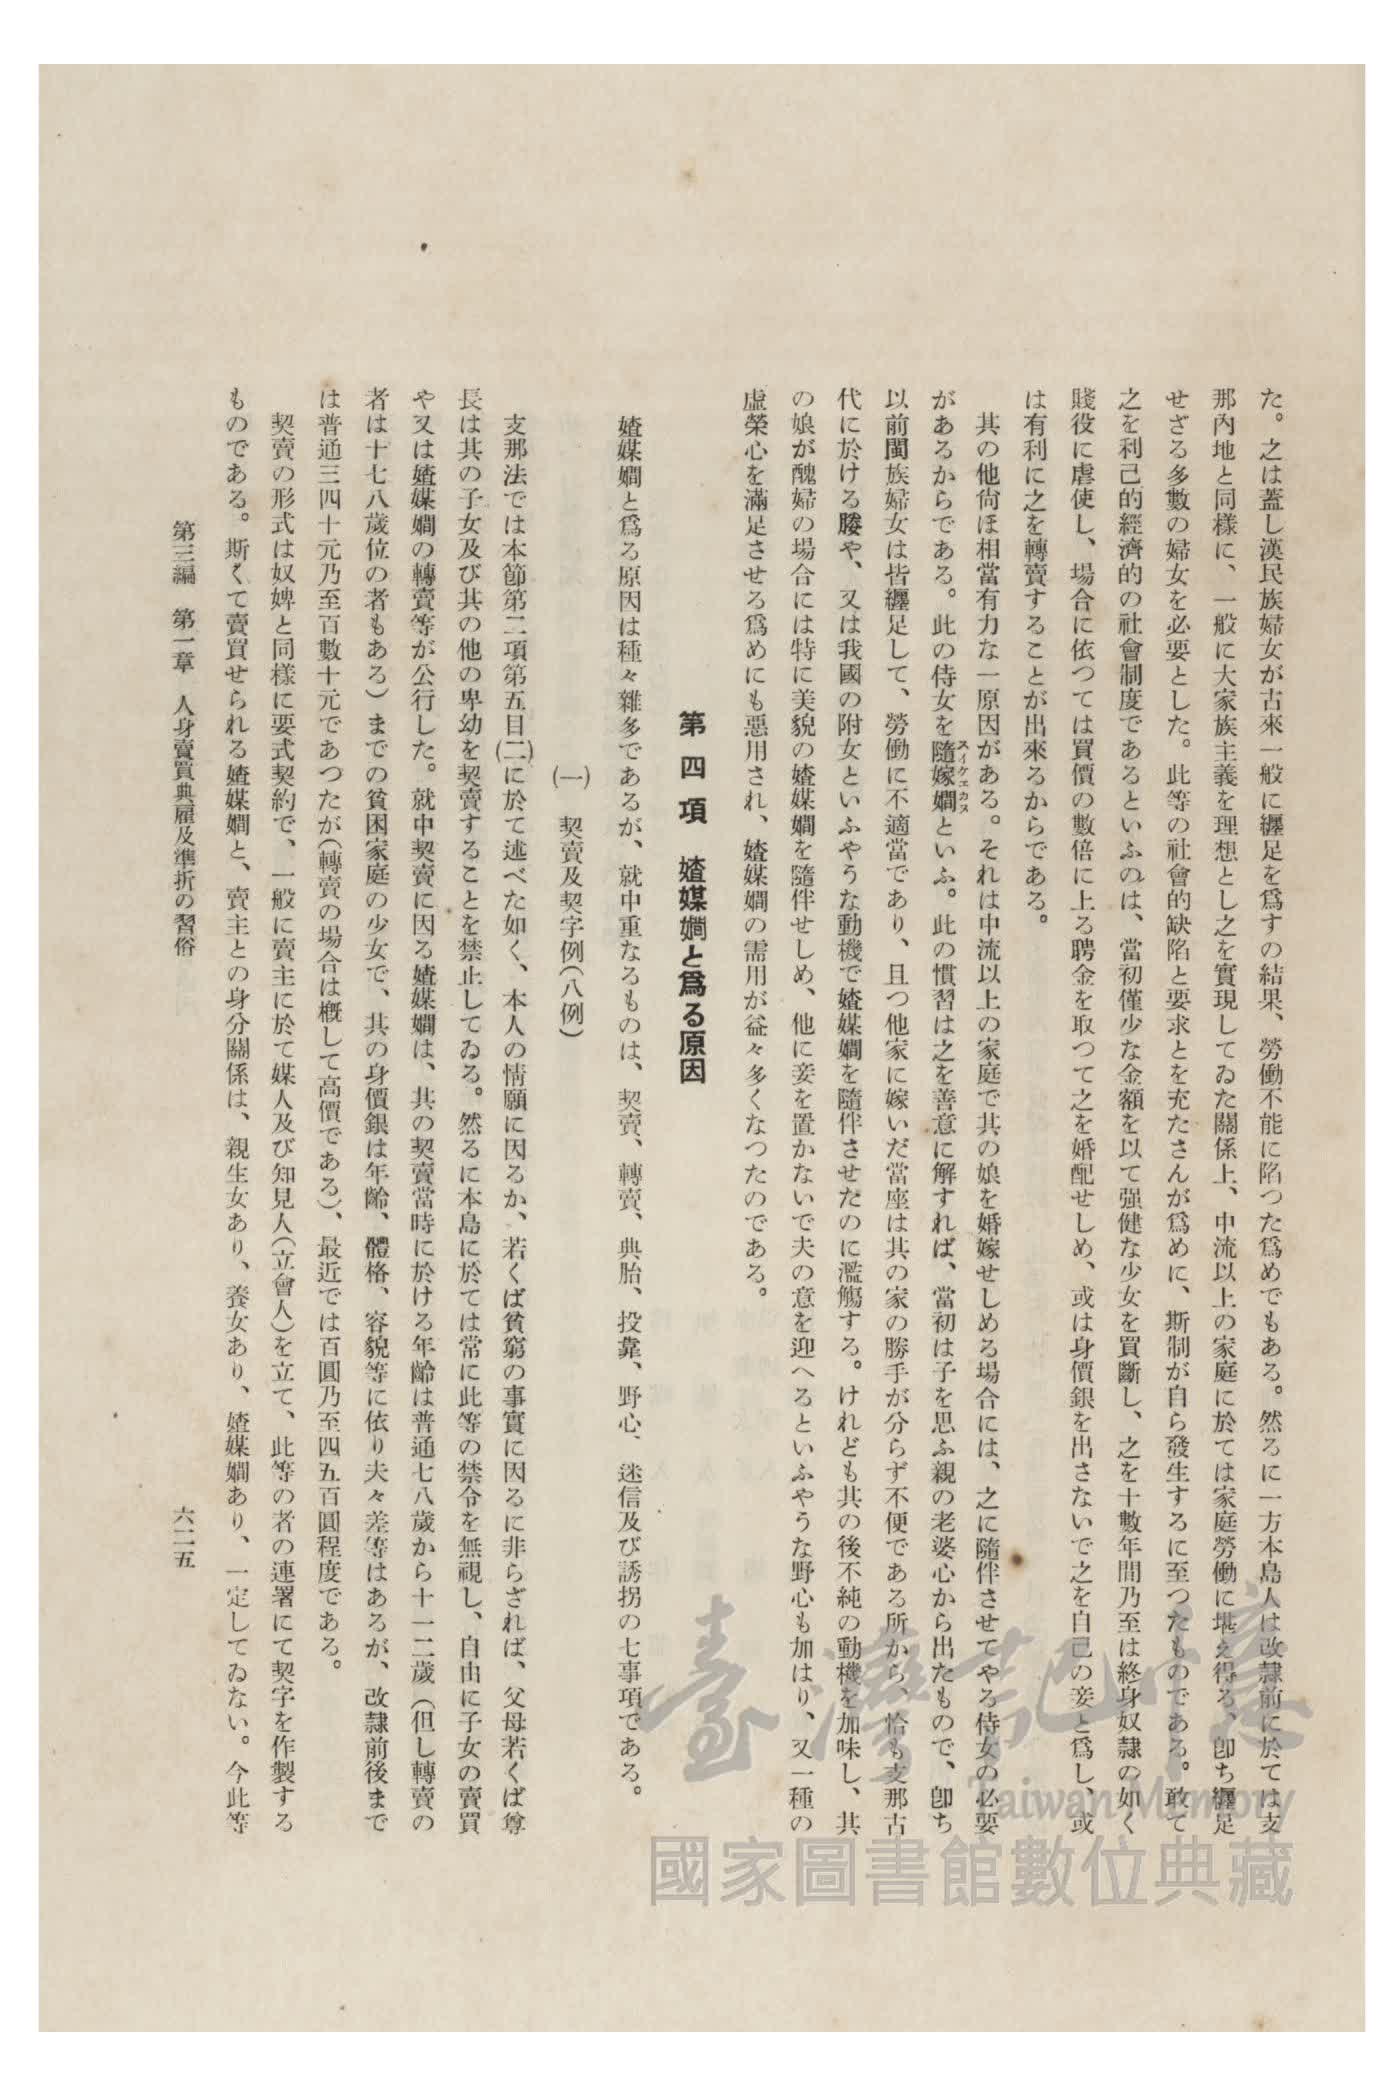 た。之は蓋し漢民族婦女が古來一般に纒足を爲すの結果、勞働不能に陷つた爲めでもある。然るに一方本島人は改隷前に於ては支
那內地と同樣に、一般に大家族主義を理想とし之を實現してゐた關係上、中流以上の家庭に於ては家庭勞働に堪え得る、卽ち纒足
せざる多數の婦女を必要とした。此等の社會的缺陷と要求とを充たさんが爲めに、斯制が自ら發生するに至つたものである。敢て
之を利己的經濟的の社會制度であるといふのは、當初僅少な金額を以て强健な少女を買斷し、之を十數年間乃至は終身奴隷の如く
賤役に虐使し、場合に依つては買價の數倍に上る聘金を取つて之を婚配せしめ、或は身價銀を出さないで之を自己の妾と爲し、或
は有利に之を轉賣することが出來るからである。
其の他尙ほ相當有力な一原因がある。それは中流以上の家庭で其の娘を婚嫁せしめる場合には、之に隨伴させてやる侍女の必要
があるからである。此の侍女を隨嫁嫺といふ。此の慣習は之を善意に解すれば、當初は子を思ふ親の老婆心から出たもので、卽ち
以前閩族婦女は皆纒足して、勞働に不適當であり、且つ他家に嫁いだ當座は其の家の勝手が分らず不便である所から、恰も支那古
代に於ける媵や、又は我國の附女といふやうな動機で媎媒嫺を隨伴させたのに濫觴する。けれども其の後不純の動機を加味し、其
の娘が醜婦の場合には特に美貌の媎媒嫺を隨伴せしめ、他に妾を置かないで夫の意を迎へるといふやうな野心も加はり、又一種の
虛榮心を滿足させる爲めにも惡用され、媎媒嫺の需用が益々多くなつたのである。
第四項　媎媒嫺と爲る原因
媎媒嫺と爲る原因は種々雜多であるが、就中重なるものは、契賣、轉賣、典胎、投靠、野心、迷信及び誘拐の七事項である。
(一)　契賣及契字例(八例)
支那法では本節第二項第五目(二)に於て述べた如く、本人の情願に因るか、若くば貧窮の事實に因るに非らざれば、父母若くば尊
長は其の子女及び其の他の卑幼を契賣することを禁止してゐる。然るに本島に於ては常に此等の禁令を無視し、自由に子女の賣買
や又は媎媒嫺の轉賣等が公行した。就中契賣に因る媎媒嫺は、其の契賣當時に於ける年齡は普通七八歲から十一二歲(但し轉賣の
者は十七八歲位の者もある)までの貧困家庭の少女で、其の身價銀は年齡、體格、容貌等に依り夫々差等はあるが、改隷前後まで
は普通三四十元乃至百數十元であつたが(轉賣の場合は槪して高價である)、最近では百圓乃至四五百圓程度である。
契賣の形式は奴婢と同樣に要式契約で、一般に賣主に於て媒人及び知見人(立會人)を立て、此等の者の連署にて契字を作製する
ものである。斯くて賣買せられる媎媒嫺と、賣主との身分關係は、親生女あり、養女あり、媎媒嫺あり、一定してゐない。今此等
第三編　第一章　人身賣買典雇及準折の習俗
六二五
臺灣記憶
Taiwan Memory
國家圖書館數位典藏